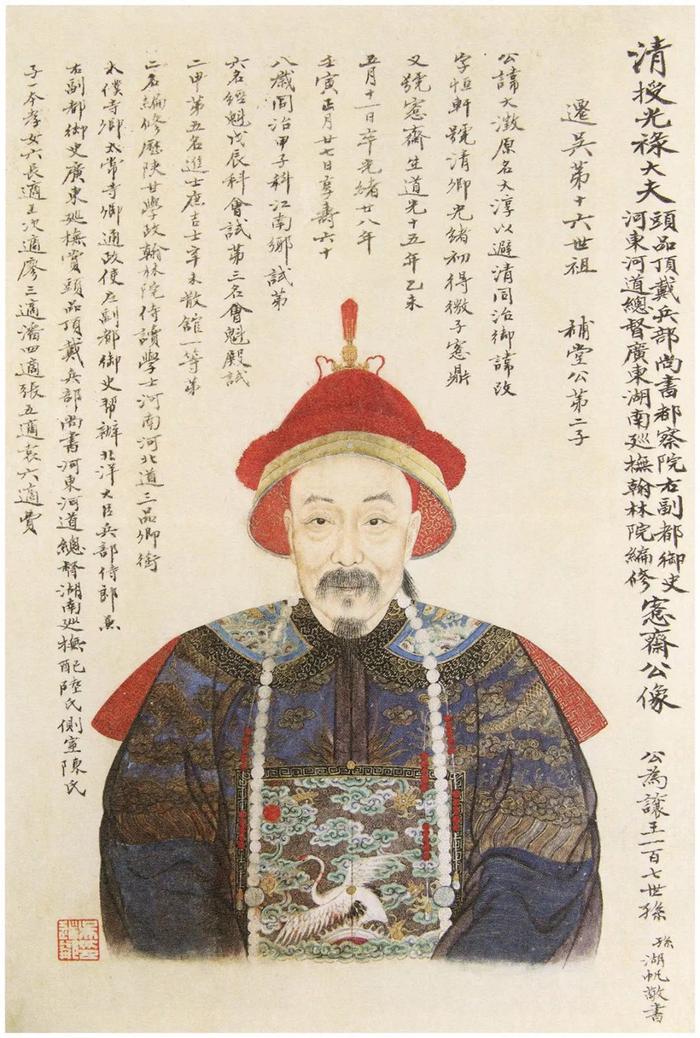 清授光祿大夫
頭品頂戴兵部尚書都察院右副都御史
河東河道總督廣東湖南廵撫翰林院編修
愙齋公像
公為讓王一百七世孫
孫湖帆敬書
遷吳第十六世祖 補堂公第二子
公諱大澂原名大淳以避清同治御諱改
字恒軒號清卿光緒初得微子愙鼎
又號愙齋生道光十五年乙未
五月十一日卒光緒廿八年
壬寅正月廿七日享壽六十
八歲同治甲子科江南鄉試第
六名經魁戊辰科會試第三名會魁殿試
二甲第五名進士庶吉士辛未散館一等第
二名編修歷陝甘學政翰林院侍讀學士河南河北道三品卿銜
太僕寺卿太常寺卿通政使左副都御史幫辦北洋大臣兵部侍郎兼
右副都御史廣東廵撫賞頭品頂戴兵部尚書河東河道總督湖南廵撫配陸氏側室陳氏
子一本孝女六長適王次適廖三適潘四適張五適袁六適費